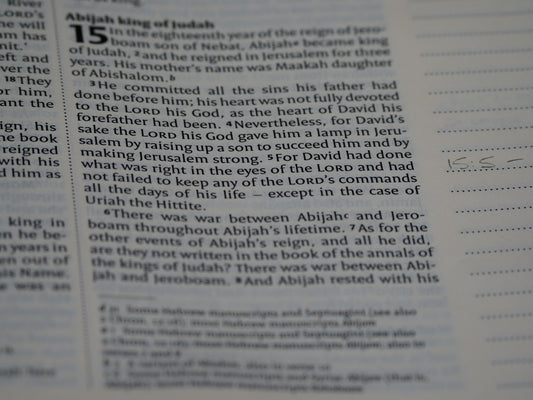 River
LORD's
he will
am has
mit.'
eft and
ver the
18They
or him,
ant the
ign, his
he book
reigned
with his
d him as
king in
n he be-
n years in
en out of
is Name.
e was an
Abijah king of Judah
15 In the eighteenth year of the reign of Jero-
boam son of Nebat, Abijah became king
of Judah, 2 and he reigned in Jerusalem for three
years. His mother's name was Maakah daughter
of Abishalom.b
3 He committed all the sins his father had
done before him; his heart was not fully devoted
to the LORD his God, as the heart of David his
forefather had been. 4 Nevertheless, for David's
sake the LORD his God gave him a lamp in Jeru-
salem by raising up a son to succeed him and by
making Jerusalem strong. 5 For David had done
what was right in the eyes of the LORD and had
not failed to keep any of the LORD's commands
all the days of his life – except in the case of
Uriah the Hittite.
6 There was war between Abijahc and Jero-
boam throughout Abijah's lifetime. 7 As for the
other events of Abijah's reign, and all he did,
are they not written in the book of the annals of
the kings of Judah? There was war between Abi-
jah and Jeroboam. 8 And Abijah rested with his
Some Hebrew manuscripts and Septuagint (see also
most Hebrew manuscripts
Some Hebrew manuscripts and Septuagint (see also
most Hebrew manuscripts
15:5 –